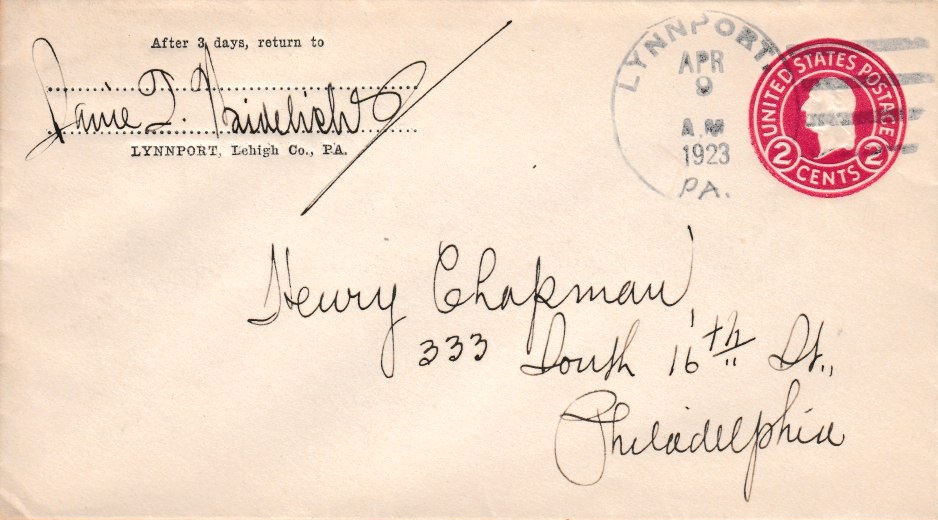 After 3 days, return to
LYNNPORT, Lehigh Co., PA.
LYNNPORT
APR
9
A.M
1923
PA.
UNITED STATES POSTAGE
2 CENTS 2
Henry Chapman
333 South 16th St.,
Philadelphia